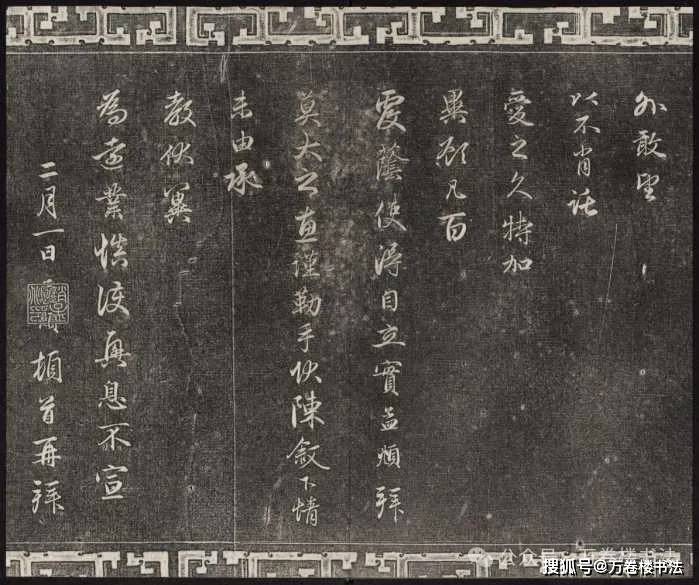 外敢望
以不肖託
愛之久特加
異顧凡百
覆蔭使得自立實孟頫拜
莫大之惠謹勒手狀陳敘下情
未由承
教伏冀
為遠業慎護興息不宣
二月一日
頓首再拜
公众号·万卷楼书法
搜狐号@万卷楼书法